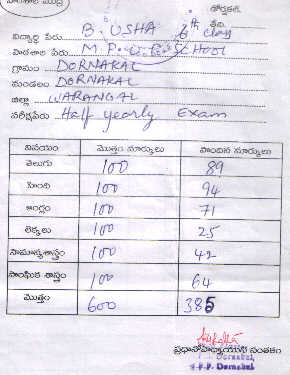 విద్యార్థి పేరు B. USHA 6th class
పాఠశాల పేరు M.P.U.P. SCHOOL
గ్రామం DORNAKAL
మండలం DORNAKAL
జిల్లా WARANGAL
పరీక్షపేరు Half yearly Exam
విషయం మొత్తం మార్కులు పొందిన మార్కులు
తెలుగు 100 89
హింది 100 94
ఆంగ్లం 100 71
లెక్కలు 100 25
సామాన్యశాస్త్రం 100 42
సాంఘిక శాస్త్రం 100 64
మొత్తం 600 385
ప్రధానోపాధ్యాయుని సంతకం
Dornakal